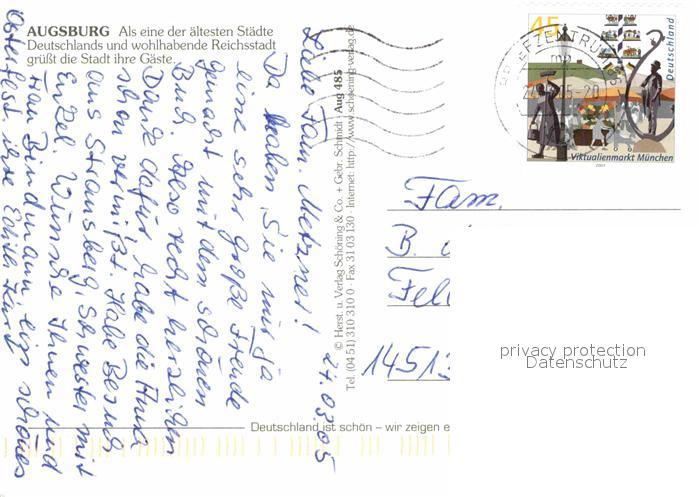 AUGSBURG Als eine der ältesten Städte
Deutschlands und wohlhabende Reichsstadt
grüßt die Stadt ihre Gäste.
24.03.05
Liebe Fam. Metzner!
Da haben Sie mir ja
eine sehr große Freude
gemacht mit dem schönen
Buch. Also recht herzlichen
Dank dafür habe die
schon vermißt. Habe Besuch
aus Strausberg, Schwester mit
Enkel. Wünsche Ihnen und
schönes
Osterfest. ihre
© Herst. u. Verlag Schöning & Co. + Gebr. Schmidt · Aug 485
Tel. (04 51) 310 310 0 · Fax 31 03 130 · Internet: http://www.schoening-verlag.de
Deutschland ist schön – wir zeigen e
45
Deutschland
Viktualienmarkt München
BRIEFZENTRUM
Fam.
B.
Fel
1451
privacy protection
Datenschutz